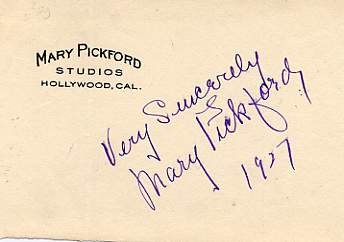 MARY PICKFORD
STUDIOS
HOLLYWOOD, CAL.
Very Sincerely
Mary Pickford,
1927